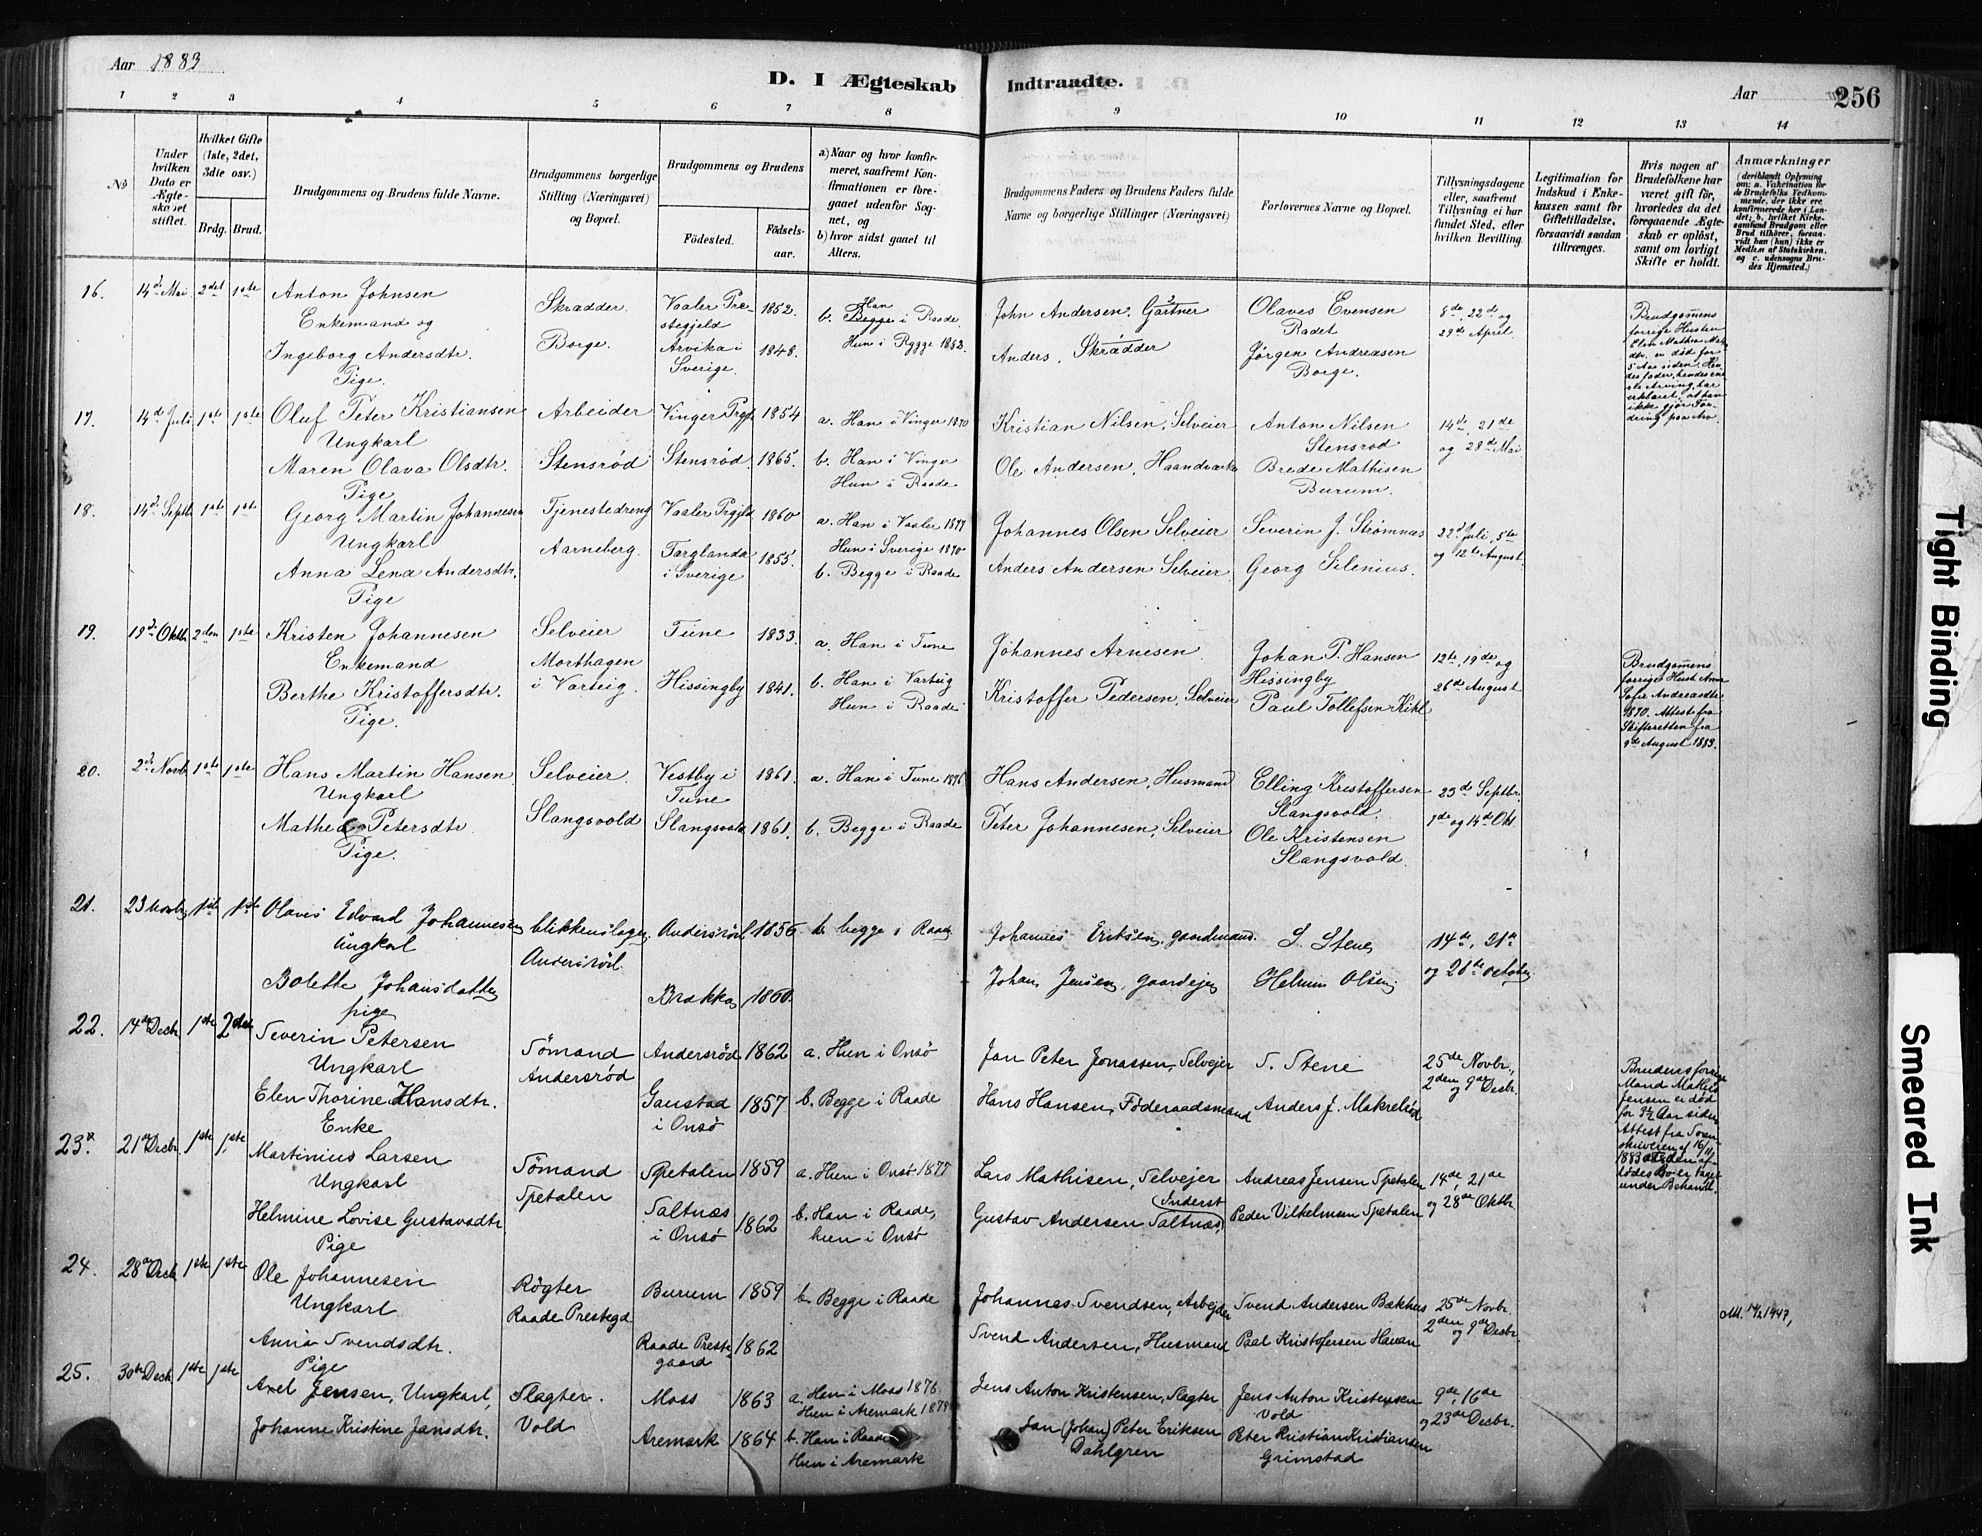 Aar 1883
D. I Ægteskab Indtraadte.
Aar
256
1 2 3 4 5 6 7 8 9 10 11 12 13 14
No
Under hvilken Dato er Ægteskabet stiftet.
Hvilket Gifte (1ste, 2det, 3die osv.)
Brdg. Brud.
Brudgommens og Brudens fulde Navne.
Brudgommens borgerlige Stilling (Næringsvei) og Bopæl.
Brudgommens og Brudens
Fødested.
Fødselsaar.
a) Naar og hvor konfirmeret, saafremt Konfirmationen er foregaaet udenfor Sognet, og
b) hvor sidst gaaet til Alters.
Brudgommens Faders og Brudens Faders fulde Navne og borgerlige Stillinger (Næringsvei)
Forlovernes Navne og Bopæl.
Tillysningsdagene eller, saafremt Tillysning ei har fundet Sted, efter hvilken Bevilling.
Legitimation for Indskud i Enkekassen samt for Giftetilladelse, forsaavidt saadan tiltrænges.
Hvis nogen af Brudefolkene har været gift før, hvorledes da det foregaaende Ægteskab er opløst, samt om lovligt Skifte er holdt.
Anmærkninger (deriblandt Oplysning om: a. Vakcination for de Brudefolks Vedkommende, der ikke ere konfirmerede her i Landet; b. hvilket Kirkesamfund Brudgom eller Brud tilhører, forsaavidt han (hun) ikke er Medlem af Statskirken, og c. udensogns Brudes Hjemsted.)
16. 14de Mai 2det 1ste Anton Johnsen
Enkemand og
Ingeborg Andersdtr.
Pige.
Skrædder.
Borge.
Vaaler Præstegjeld 1852.
Arvika i Sverige. 1848.
b. Han i Raade.
Hun i Rygge 1883.
John Andersen, Gartner
Anders, Skrædder
Olaves Evensen
Radet
Jørgen Andreasen
Borge.
8de, 22de og
29de April.
Brudgommens
forrige Hustru
Elen Mathea
dtr. er død for
5 Aar siden. Hendes fader, hendes eneste Arving, har
erklæret, at han
ikke gjør Fordring paa Arv.
17. 14de Juli 1ste 1ste Oluf Peter Kristiansen
Ungkarl
Maren Olava Olsdtr.
Pige
Arbeider
Stensrød
Vinger Prgjl 1854
Stensrød 1865.
a. Han i Vinger 1870
b. Han i Vinger
Hun i Raade
Kristian Nilsen, Selveier
Ole Andersen, Haandværker
Anton Nilsen
Stensrød
Brede Mathisen
Burum.
14de, 21de
og 28de Mai
18. 14de Septb 1ste 1ste Georg Martin Johannesen
Ungkarl
Anna Lena Andersdtr.
Pige
Tjenestedreng
Aarneberg.
Vaaler Prgjeld 1860
Færglanda i Sverige 1855.
a. Han i Vaaler 1877
Hun i Sverige 1870
b. Begge i Raade
Johannes Olsen Selveier
Anders Andersen Selveier
Severin J. Strømnæs
Georg Silenius.
22de Juli, 5te
og 12te August
19. 19de Oktb 2den 1ste Kristen Johannesen
Enkemand
Berthe Kristoffersdtr.
Pige.
Selveier
Morthagen
i Varteig.
Tune 1833.
Hissingby 1841.
a. Han i Tune
b. Han i Varteig
Hun i Raade
Johannes Arnesen
Kristoffer Pedersen, Selveier
Johan P. Hansen
Hissingby
Paul Tollefsen Kihl
12te, 19de og
26de August
Brudgommens
forrige Hust. Anne
Sofie Andreasdtr
1870. Attest fra
Skifteretten fra
9de August 1883.
20. 2de Novb. 1ste 1ste Hans Martin Hansen
Ungkarl
Mathea Petersdtr
Pige.
Selveier.
Slangsvold
Vestby i Tune 1861.
Slangsvold 1861.
a. Han i Tune 1876
b. Begge i Raade
Hans Andersen, Husmand
Peter Johannesen, Selveier
Elling Kristoffersen
Slangsvold.
Ole Kristensen
Slangsvold.
23de Septbr,
7de og 14de Okt.
21. 23 Novb. 1ste 1ste Olavés Edvard Johannesen
Ungkarl
Bolette Johansdatter
pige
blikkenslager
Andersrød.
Andersrød 1856
Brakka 1860.
b. begge i Raade
Johannes Eriksen, gaardmand.
Johan Jensen, gaardejer
S. Stene,
Helmin Olsen,
14de, 21de
og 28de october
22. 14de Decbr 1ste 2den Severin Petersen
Ungkarl
Elen Thorine Hansdtr.
Enke
Sømand
Andersrød
Andersrød 1862
Gaustad i Onsø 1857
a. Hun i Onsø
b. Begge i Raade
Jan Peter Jonassen, Selvejer
Hans Hansen, Føderaadsmand
S. Stene
Anders J. Makrelrød
25de Novbr.,
2den og 9de Decbr.
Brudens forrige
Mand Mathis
Jensen er død
for 3½ Aar siden
Attest fra Sorenskriveren af 16/11
1883 at den afdødes Bo er taget
under Behandl.
23. 21de Decbr 1ste 1ste Martinius Larsen
Ungkarl
Helmine Lovise Gustavsdtr
Pige
Sømand
Spetalen
Spetalen 1859
Saltnæs i Onsø 1862
a. Hun i Onsø 1877
b. Han i Raade,
hun i Onsø
Lars Mathisen, Selvejer
Gustav Andersen Saltnæs, (Inderst)
Andreas Jensen Spetalen
Peder Vilhelmsen Spetalen
14de, 21de
og 28de Oktbr.
24. 28de Decb 1ste 1ste Ole Johannesen
Ungkarl
Anna Svendsdtr.
Pige
Røgter
Raade Prestegd
Burum 1859
Raade Prestegaard 1862
b. Begge i Raade
Johannes Svendsen, Arbejder
Svend Andersen, Husmand
Svend Andersen Bækhus
Paal Kristofersen Haugn
25de Novbr.
2den og 9de Decbr.
Att. 14/2 1947,
25. 30te Decb 1ste 1ste Axel Jensen, Ungkarl,
Johanne Kristine Jansdtr.
Slagter.
Vold
Moss 1863
Aremark 1864
a. Han i Moss 1876
Hun i Aremark 1879
b. Han i Raade
Hun i Aremark
Jens Anton Kristensen, Slagter
Jan (Johan) Peter Eriksen
Dahlgren
Jens Anton Kristensen
Vold
Peter Kristian Kristiansen
Grimstad
9de, 16de
og 23de Decbr.
Tight Binding
Smeared Ink